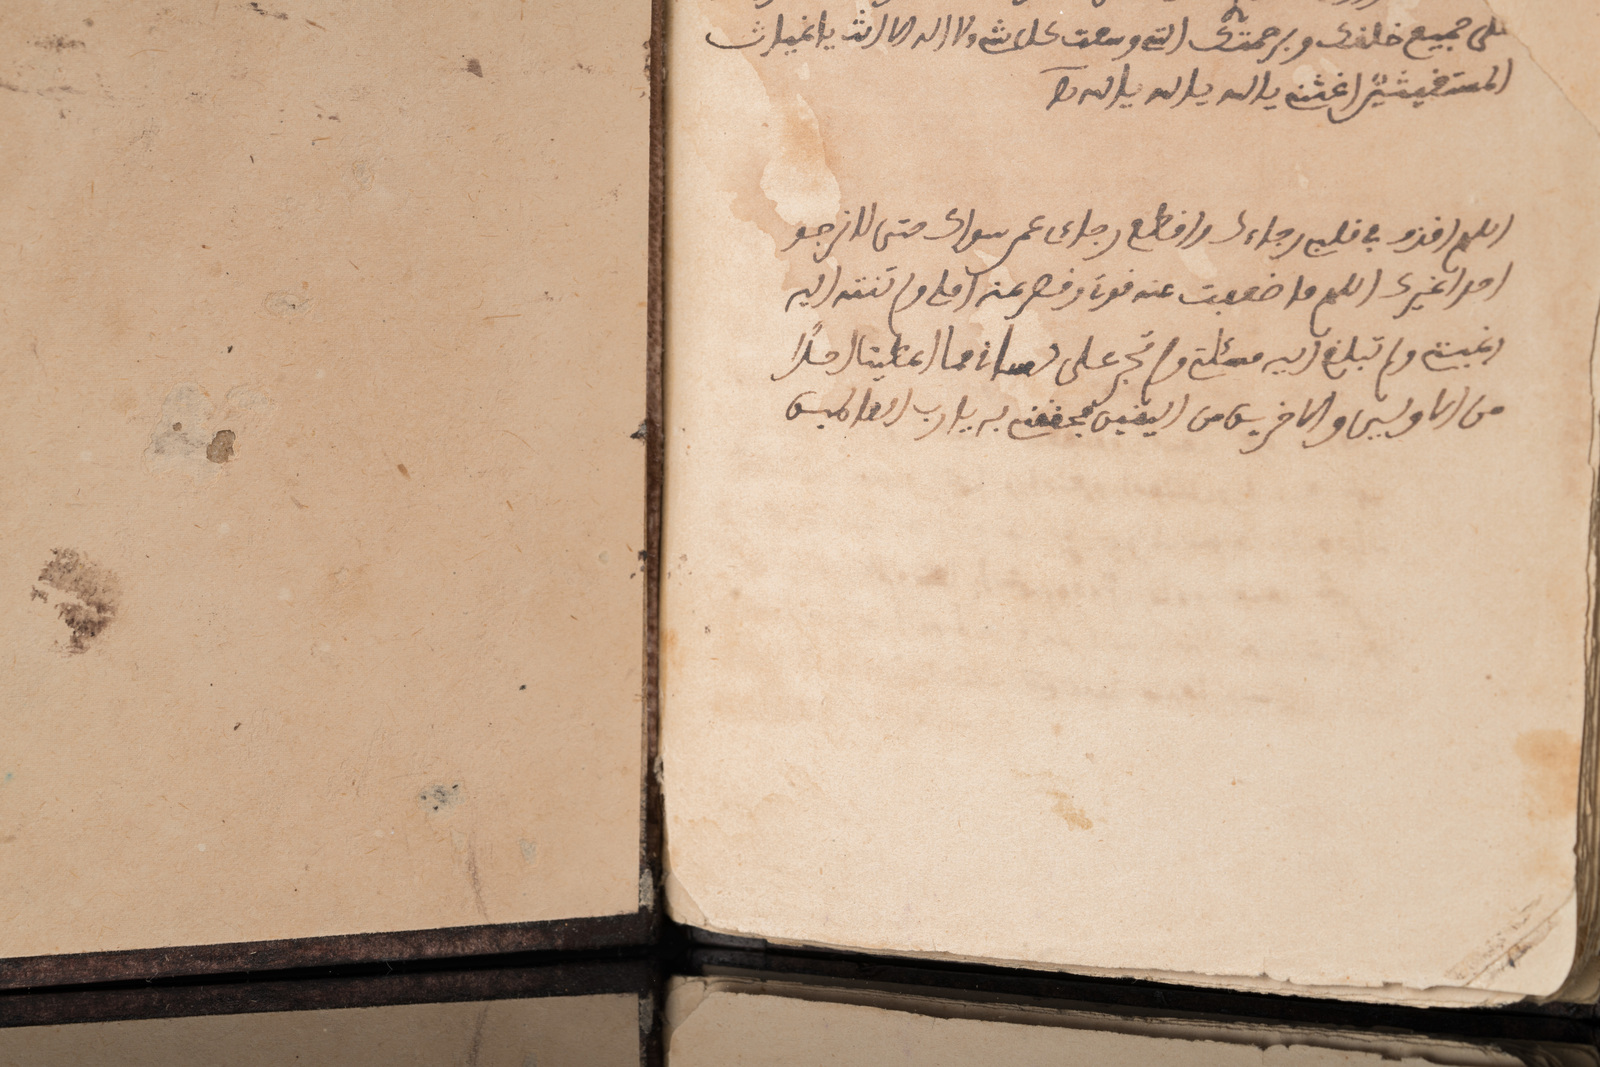 على جميع خلقك وبرحمتك التي وسعت كل شي ولا اله الا انت يا غياث
المستغيثين اغثنى يا اله يا اله يا اله
اللهم اقذف في قلبي رجاءك واقطع رجاي عمن سواك حتى لا نرجو
احدا غيرك اللهم ما ضعفت عنه قوتي وقصر عنه املي ولم تنته اليه
رغبتي ولم تبلغ اليه مسئلتي ولم تجر على لساني مما اعطيت احدا
من الاولين والاخرين من اليقين فخصني به يا رب العالمين